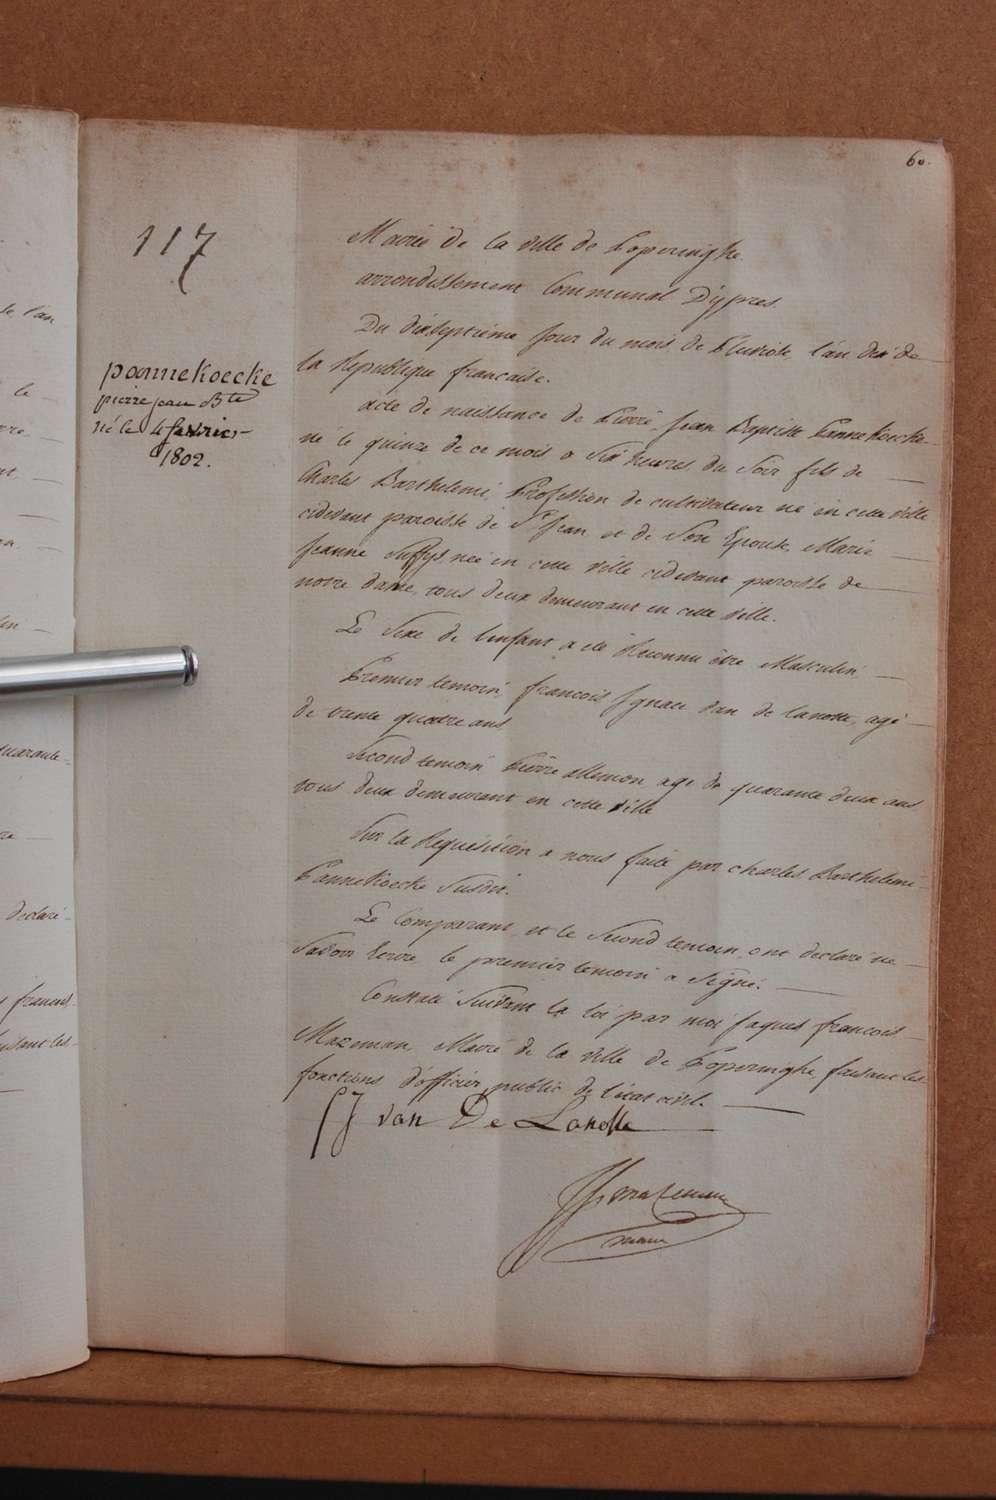 60.
117
pannekoecke
pierre jean Bte
né le 4 fevrier
1802.
Mairie de la ville de Poperinghe
arrondissement Communal D'ypres
Du dixseptieme jour du mois de Pluviose l'an dix de
la République francaise.
acte de naissance de Pierre Jean Baptiste Pannekoecke
né le quinze de ce mois a six heures du soir fils de
Charles Barthelemi, Profession de cultivateur né en cette ville
cidevant paroisse de St Jean et de son Epouse, Marie
Jeanne Suffys née en cette ville cidevant paroisse de
notre dame, tous deux demeurant en cette ville.
Le sexe de l'enfant a eté Reconnu être Masculin
Premier temoin, francois Ignace Van de lanotte, agé
de trente quatre ans
Second temoin Pierre allemon agé de quarante deux ans
tous deux demeurant en cette ville
Sur la Requisition a nous faite par charles Barthelemi
Pannekoecke susdit.
Le Comparant, et le second temoin, ont declaré ne
savoir ecrire le premier temoin a signé.
Constaté suivant la loi par moi Jaques francois
Mazeman, Maire de la ville de Poperinghe, faisant les
fonctions d'officier public de l'etat civil.
FJ van De Lanotte
JF mazeman
maire
l'an
le
quarante
declaré
francois
faisant les